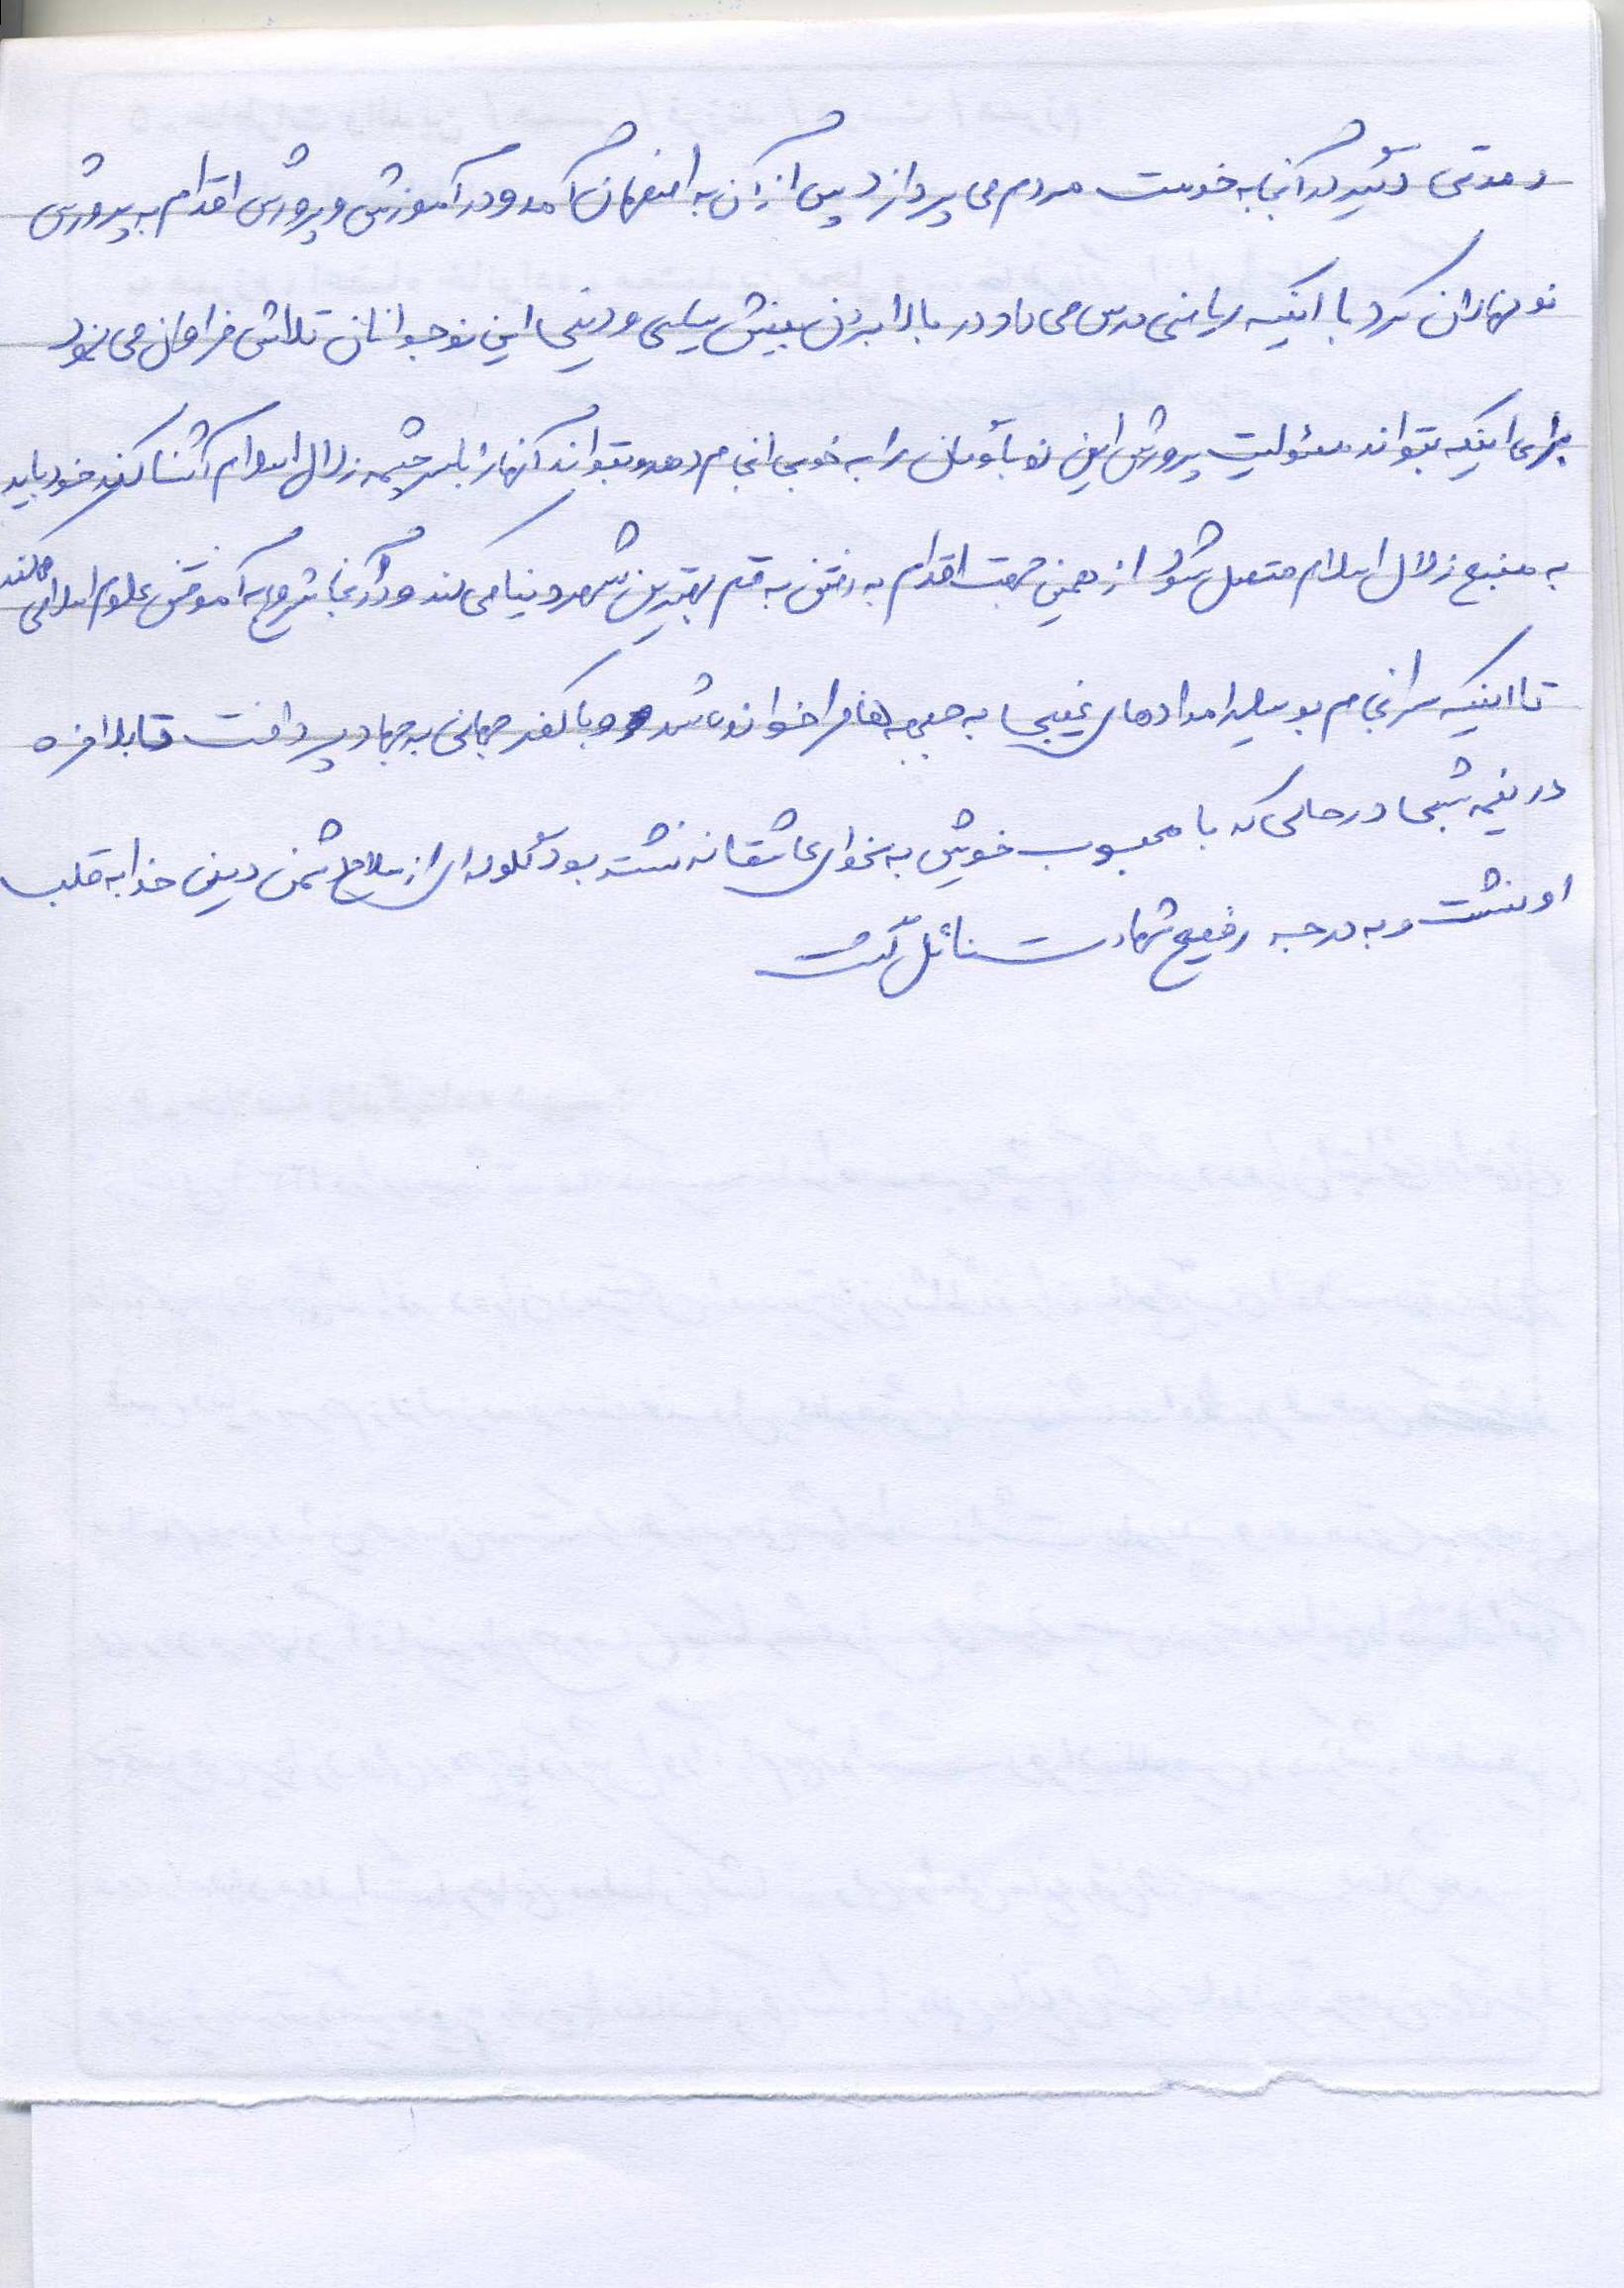 و مدتی دیگر در آنجا به خدمت مردم می پردازد پس از آن به اصفهان آمد و در آموزش و پرورش اقدام به پرورش
نونهالان کرد با اینکه ریاضی درس می داد در بالا بردن بینش سیاسی و دینی این نوجوانان تلاش فراوان می نمود
برای اینکه بتواند مسئولیت پرورش این نوباوگان را به خوبی انجام دهد و بتواند آنها را با سرچشمه زلال اسلام آشنا کند خود باید
به منبع زلال اسلام متصل شود از همین جهت اقدام به رفتن به قم بهترین شهر دنیا می کند و در آنجا شروع به آموختن علوم اسلامی می کند
تا اینکه سرانجام بوسیله امدادهای غیبی به جبهه ها فراخوانده شد و با کفر جهانی به جهاد پرداخت تا بلاخره
در نیمه شبی در حالی که با محبوب خویش به نجوای عاشقانه نشسته بود گلوله ای از سلاح دشمن دین خدا به قلب
او نشست و به درجه رفیع شهادت نائل گشت